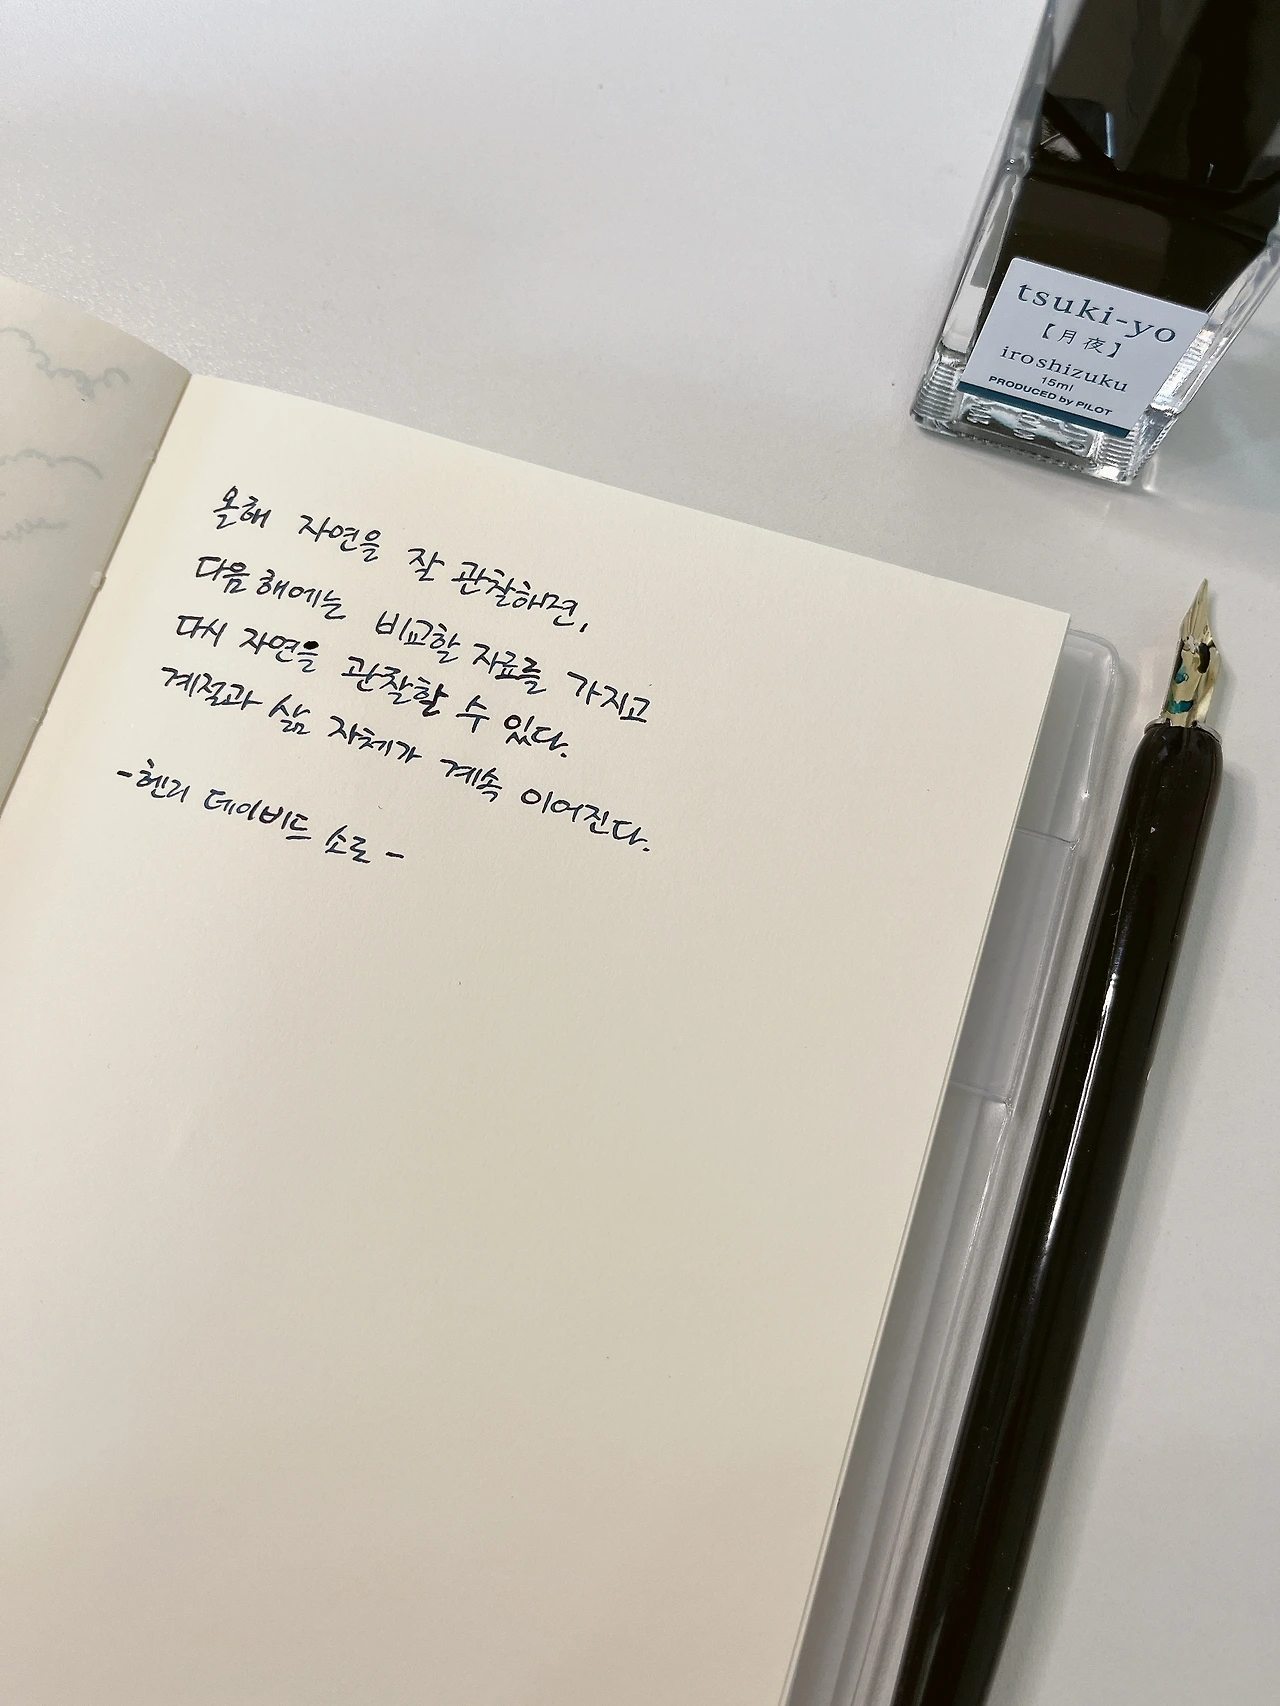 올해 자연을 잘 관찰하면,
다음 해에는 비교할 자료를 가지고
다시 자연을 관찰할 수 있다.
계절과 삶 자체가 계속 이어진다.
-헨리 데이비드 소로-
tsuki-yo
【月夜】
iroshizuku
15ml
PRODUCED by PILOT